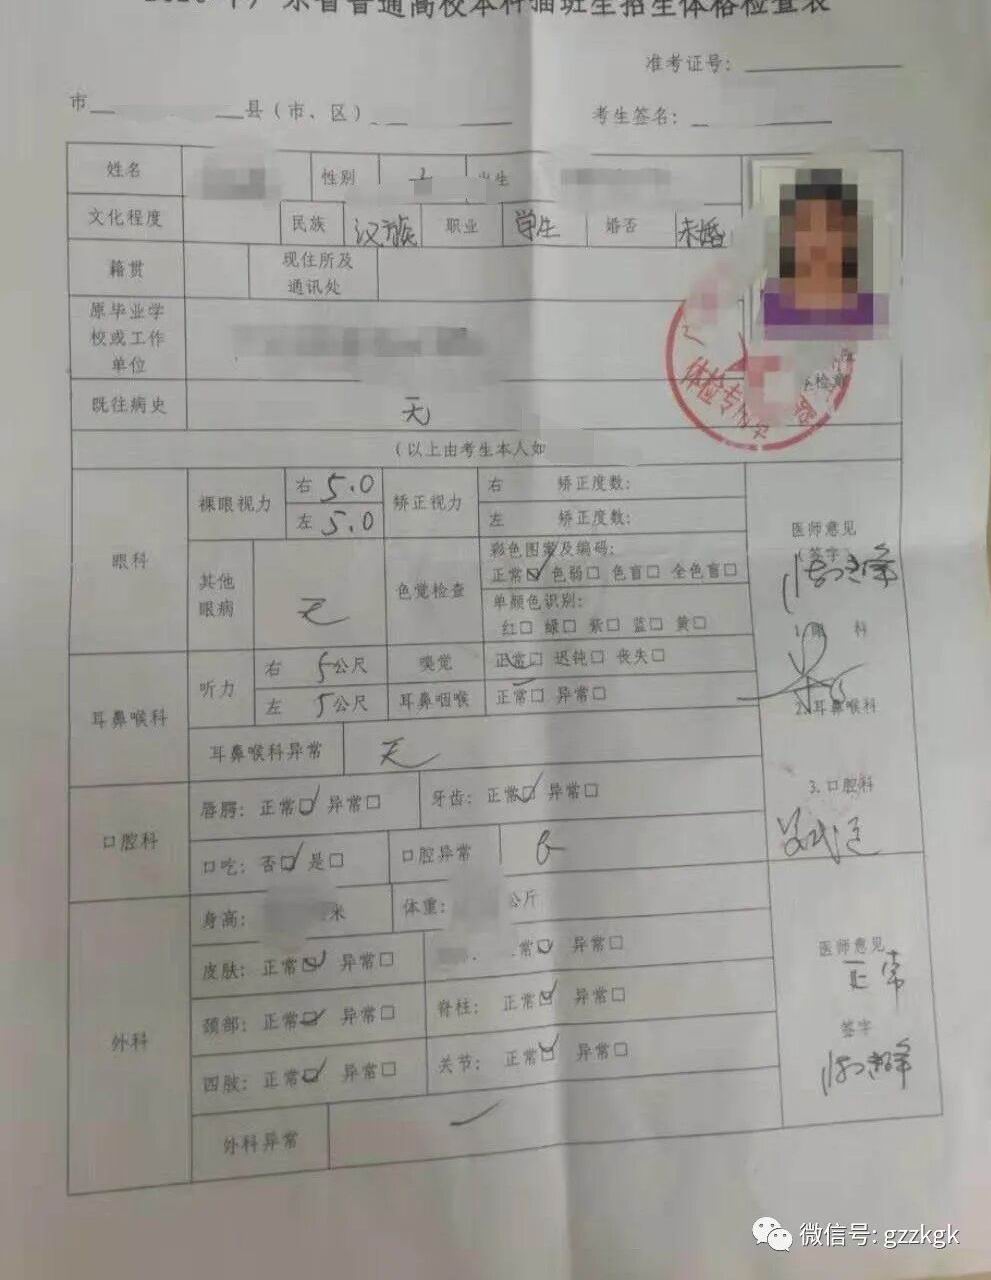 年广东省普通高校本科插班生招生体格检查表
准考证号:
市 县（市、区）
考生签名:
姓名 性别 女 出生
文化程度 民族 汉族 职业 学生 婚否 未婚
籍贯 现住所及
通讯处
原毕业学
校或工作
单位
既往病史 无
体检专用
（以上由考生本人如
眼科 裸眼视力 右 5.0 矫正视力 右 矫正度数:
左 5.0 左 矫正度数:
其他
眼病 无 色觉检查 彩色图案及编码:
正常☑ 色弱□ 色盲□ 全色盲□
单颜色识别:
红□ 绿□ 紫□ 蓝□ 黄□
医师意见
签字
1.眼 科
耳鼻喉科 听力 右 5公尺 嗅觉 正常□ 迟钝□ 丧失□
左 5公尺 耳鼻咽喉 正常□ 异常□
2.耳鼻喉科
耳鼻喉科异常 无
口腔科 唇腭: 正常☑ 异常□ 牙齿: 正常☑ 异常□
3.口腔科
口吃: 否☑ 是□ 口腔异常
外科 身高: 米 体重: 公斤
皮肤: 正常☑ 异常□ 常☑ 异常□
颈部: 正常☑ 异常□ 脊柱: 正常☑ 异常□
四肢: 正常☑ 异常□ 关节: 正常☑ 异常□
外科异常
医师意见
正常
签字
微信号: gzzkgk